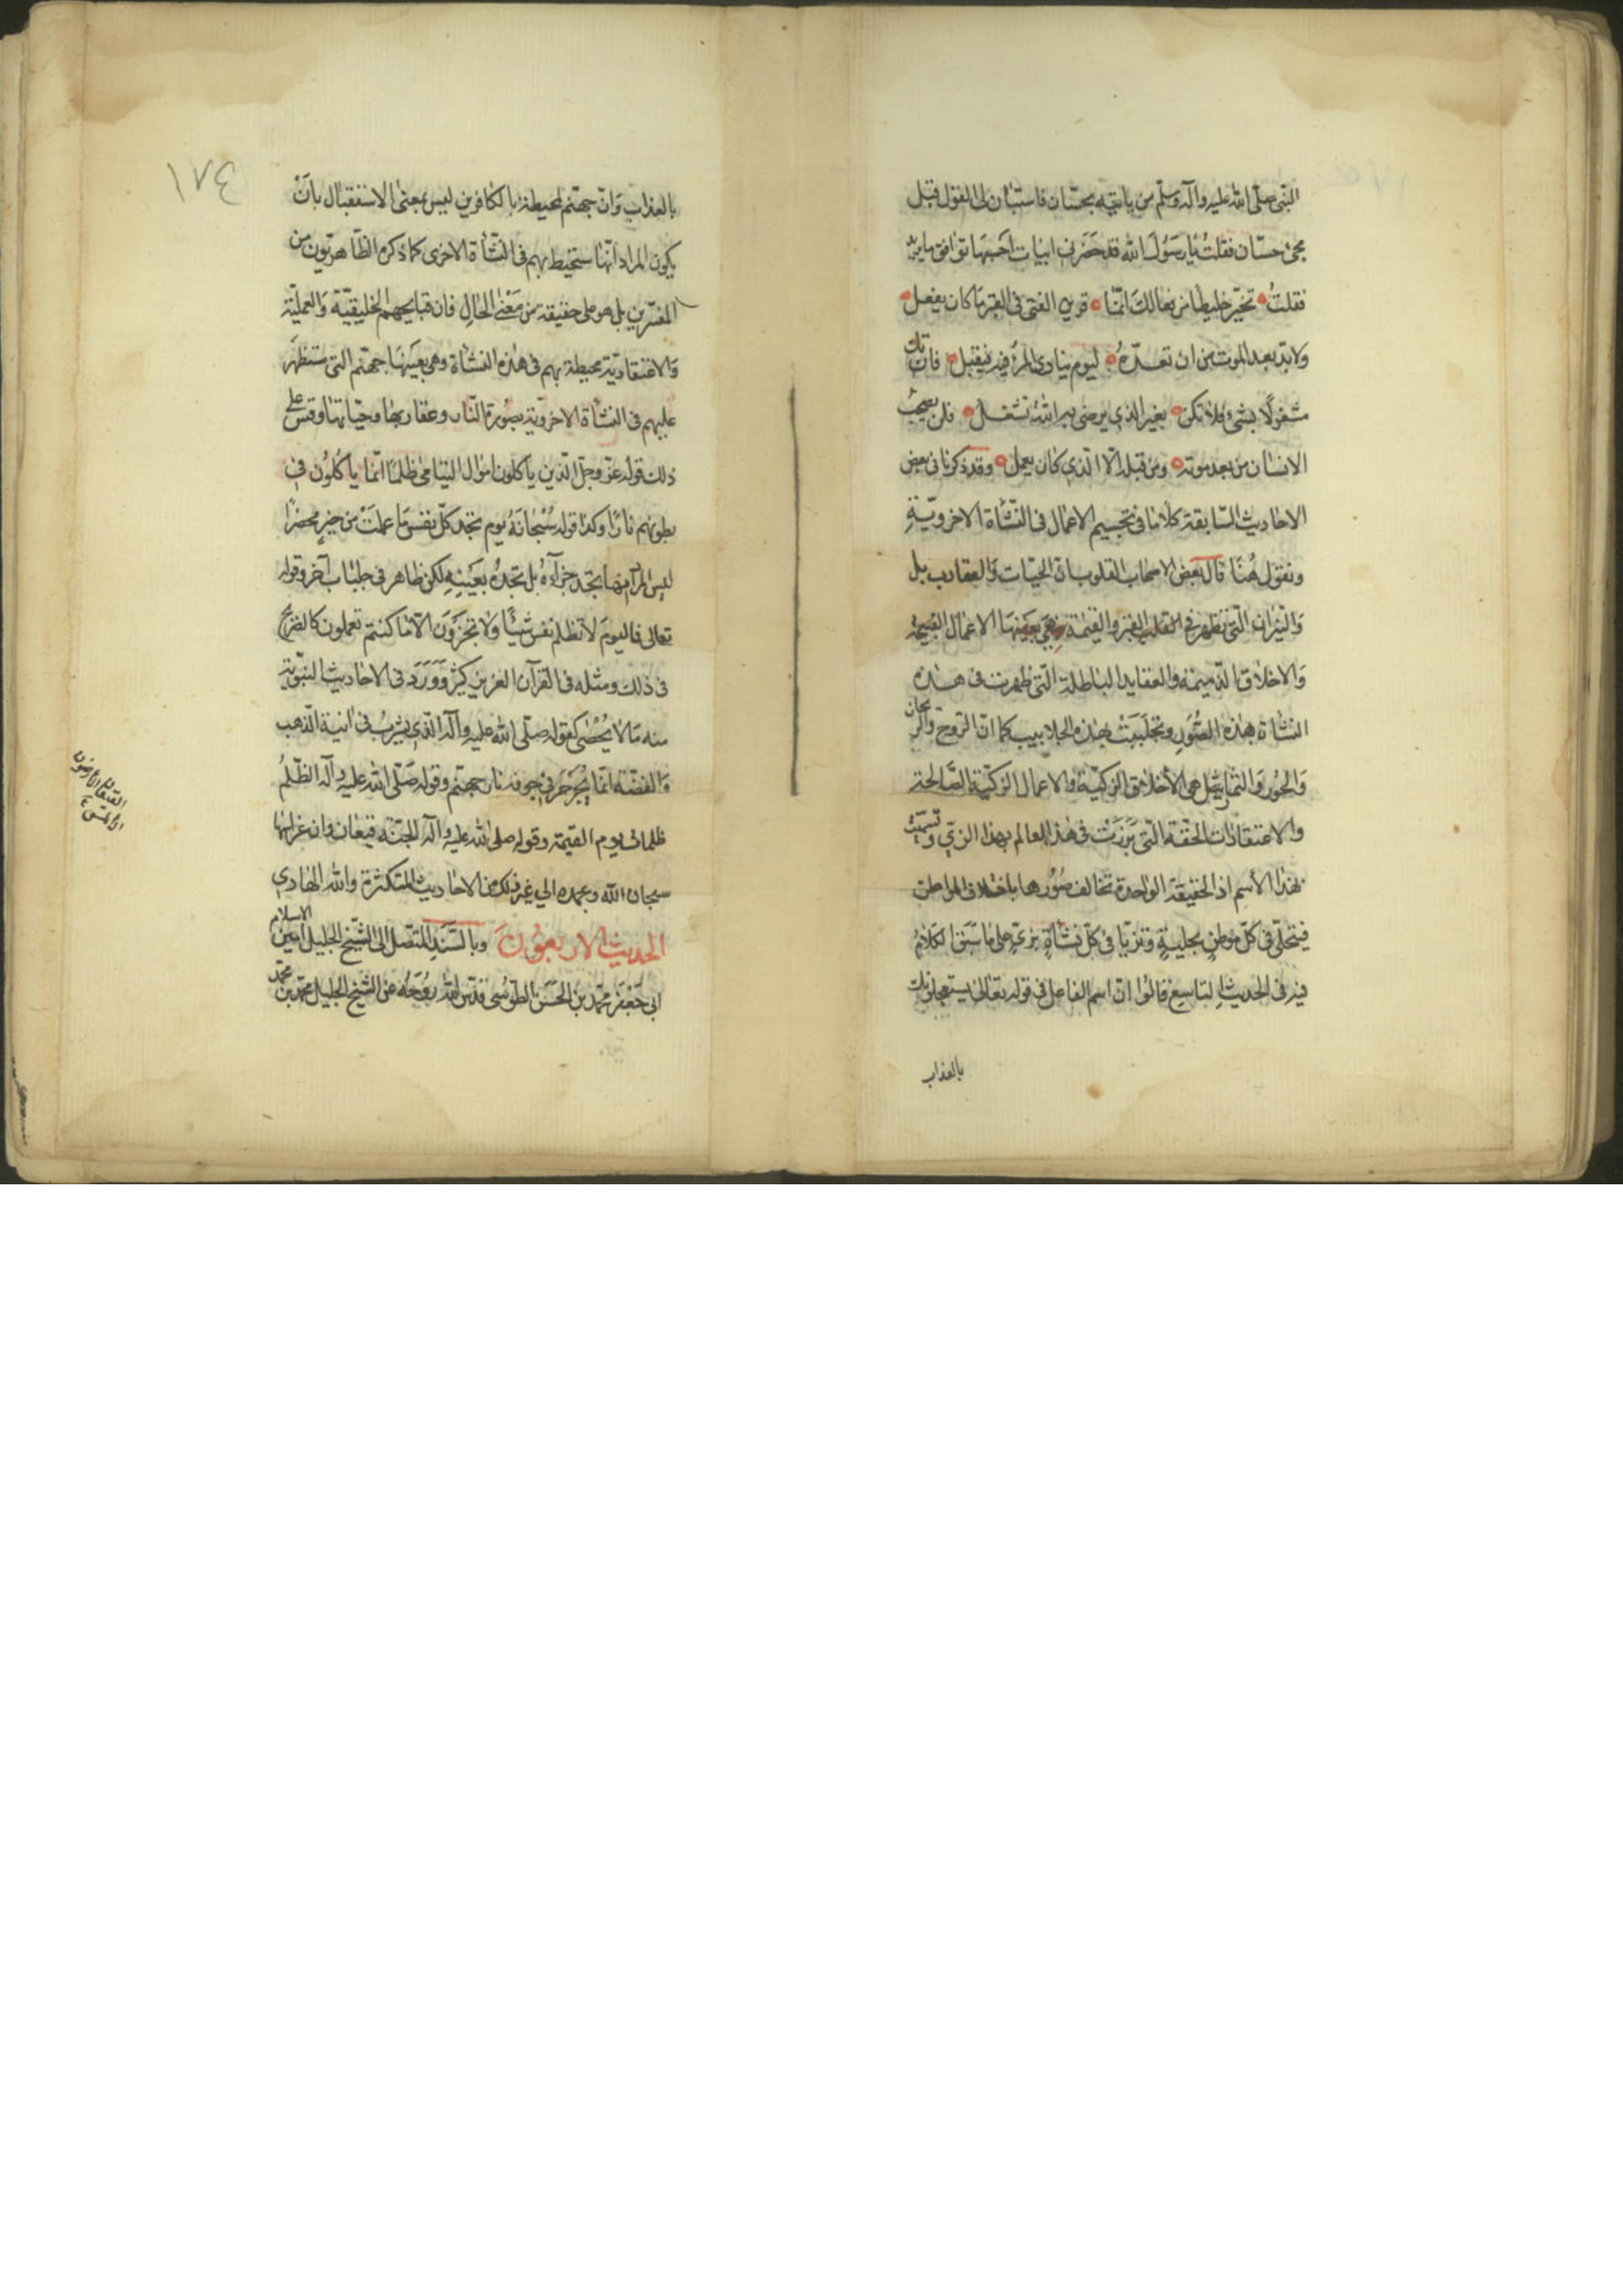 النبى صلى الله عليه وآله وسلم من ياتيه بحسان فاستبان لى القول قبل
مجئ حسان فقلت يا رسول الله قد حضرنى ابيات احسبها توافق ما يريد
فقلت تخير خليطا من فعالك انما قرين الفتى فى القبر ما كان يفعل
ولا بد بعد الموت من ان تعده ليوم ينادى المرء فيه فيقبل فان تك
مشغولا بشئ فلا تكن بغير الذى يرضى به الله تشغل فلن يصحب
الانسان من بعد موته ومن قبله الا الذى كان يعمل وقد ذكرنا فى بعض
الاحاديث السابقة كلاما فى تجسيم الاعمال فى النشأة الاخروية
ونقول هنا قال بعض اصحاب القلوب ان الحيات والعقارب بل
والنيران التى تظهر فى القبر والقيمة هى بعينها الاعمال القبيحة
والاخلاق الذميمة والعقايد الباطلة التى ظهرت فى هذه
النشأة بهذه الصور وتجلببت بهذه الجلابيب كما ان الروح والريحان
والحور والثمار هى الاخلاق الزكية والاعمال الزكية الصالحة
والاعتقادات الحقة التى برزت فى هذا العالم بهذا الزى وتسمت
بهذا الاسم اذ الحقيقة الواحدة تخالف صورها باختلاف المواطن
فتتحلى فى كل موطن بحلية وتزيا فى كل نشأة بزى على ما سبق الكلام
فيه فى الحديث التاسع قالوا ان اسم الفاعل فى قوله تعالى يستعجلونك
بالعذاب
١٧٤
بالعذاب وان جهنم لمحيطة بالكافرين ليس بمعنى الاستقبال بان
يكون المراد انها ستحيط بهم فى النشأة الاخرى كما ذكره الظاهريون من
المفسرين بل هو على حقيقته من معنى الحال فان قبايحهم الخليقية والعملية
والاعتقادية محيطة بهم فى هذه النشأة وهى بعينها جهنم التى ستظهر
عليهم فى النشأة الاخروية بصورة النار وعقاربها وحياتها وقس على
ذلك قوله عز وجل الذين ياكلون اموال اليتامى ظلما انما ياكلون فى
بطونهم نارا وكذا قوله سبحانه يوم تجد كل نفس ما عملت من خير محضرا
ليس المراد انها تجد جزاءه بل تجده بعينه لكن ظاهر فى جلباب آخر وقوله
تعالى فاليوم لا تظلم نفس شيئا ولا تجزون الا ما كنتم تعملون كالصريح
فى ذلك ومثله فى القرآن العزيز كثير وورد فى الاحاديث النبوية
منه ما لا يحصى كقوله صلى الله عليه وآله الذى يشرب فى آنية الذهب
والفضة انما يجرجر فى جوفه نار جهنم وقوله صلى الله عليه وآله الظلم
ظلمات يوم القيمة وقوله صلى الله عليه وآله الجنة قيعان وان غراسها
سبحان الله وبحمده الى غير ذلك من الاحاديث المتكثرة والله الهادى
الحديث الاربعون وبالسند المتصل الى الشيخ الجليل امين الاسلام
ابى جعفر محمد بن الحسن الطوسى قدس الله روحه عن الشيخ الجليل محمد بن محمد